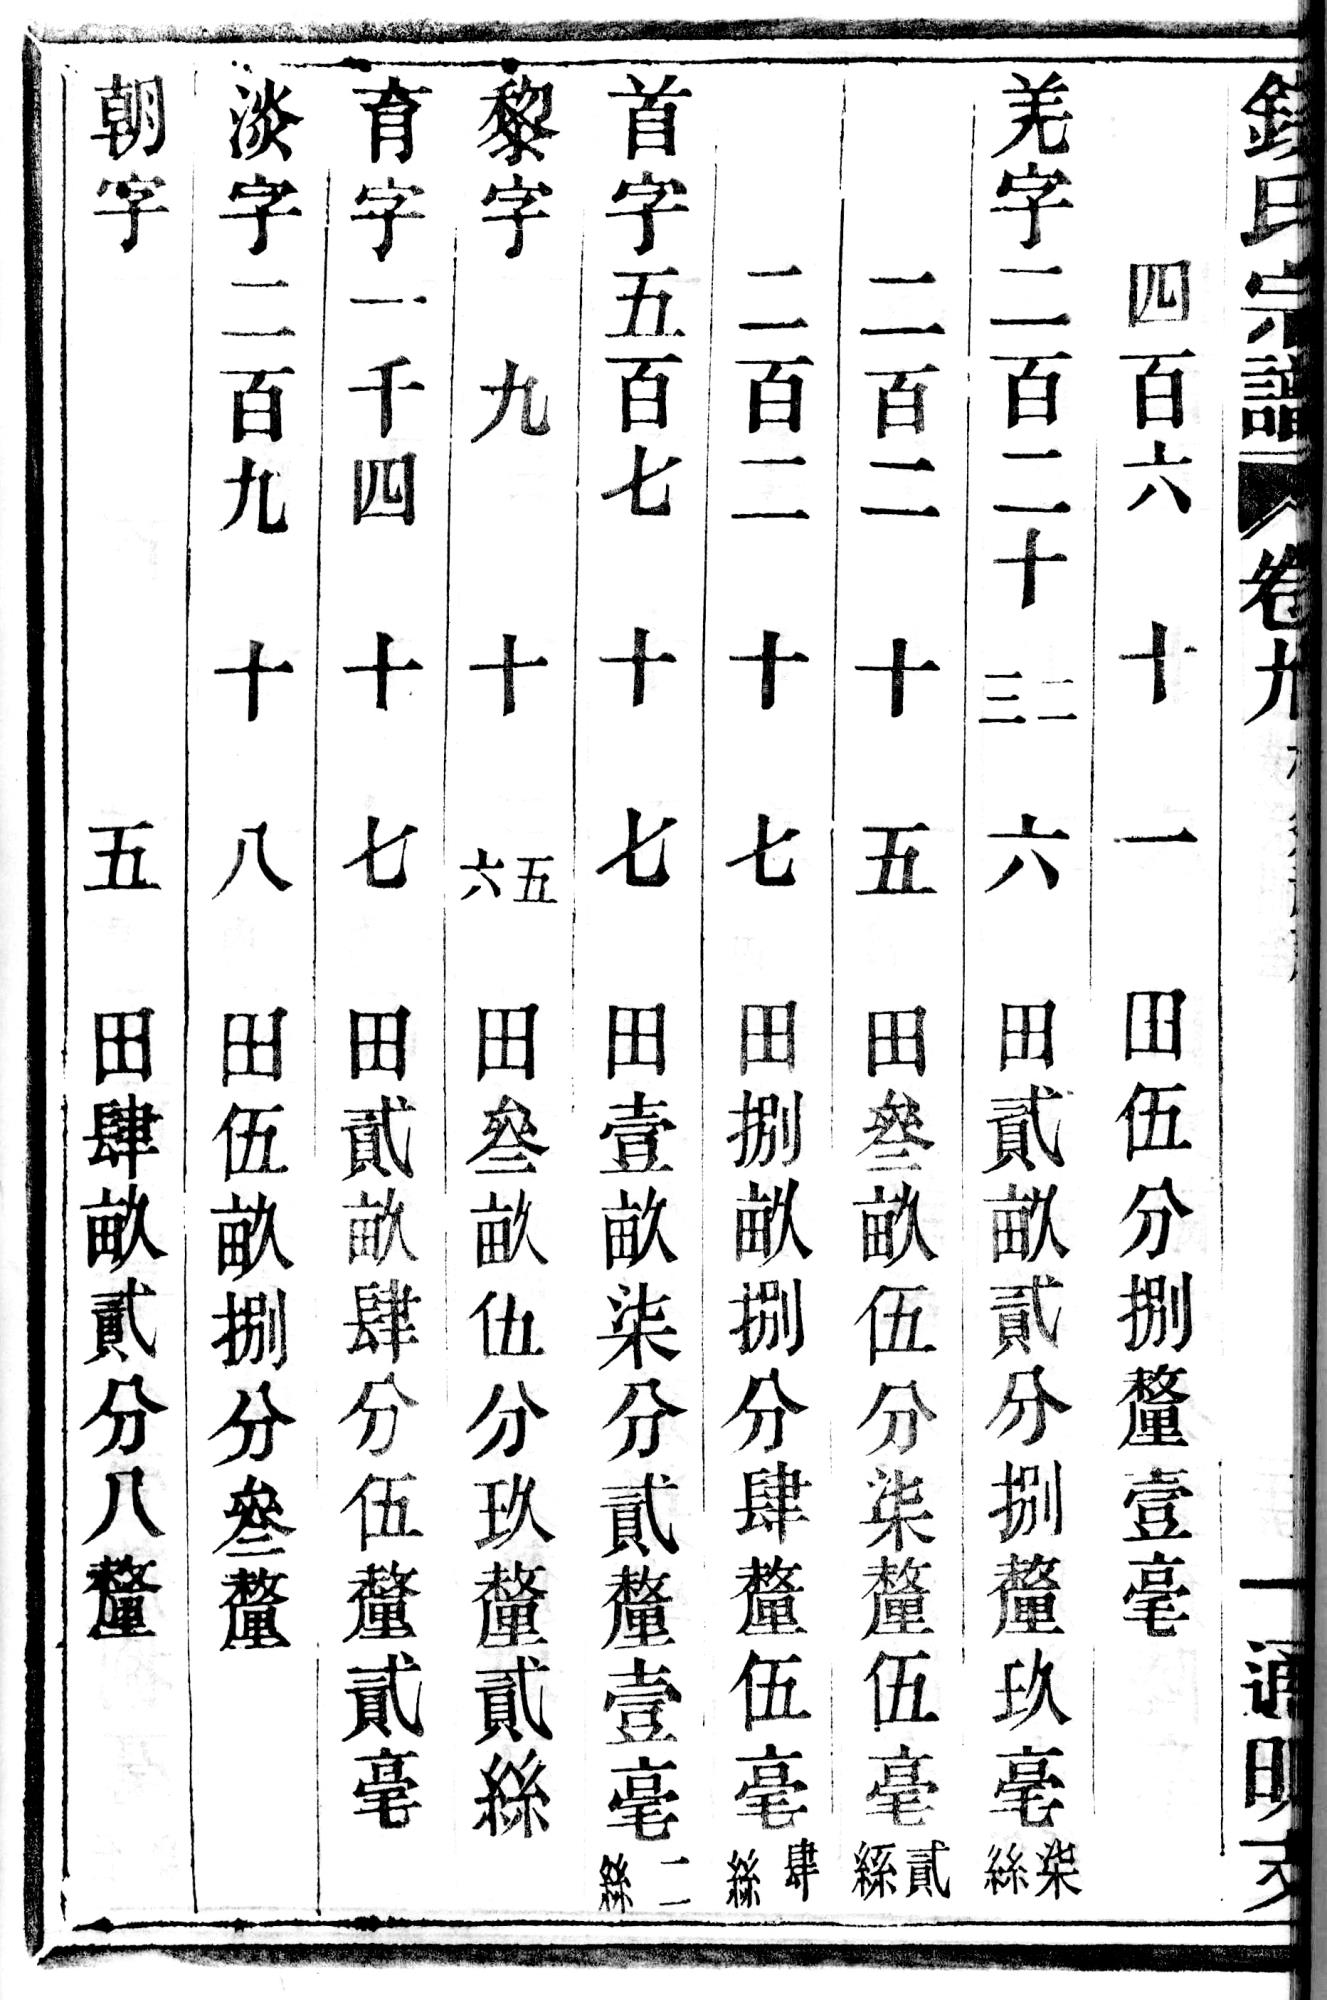 氏宗譜 卷九 一 通明
四百六 十 一 田伍分捌釐壹毫
羌字二百二十 二三 六 田貳畝貳分捌釐玖毫柒絲
二百二 十 五 田叄畝伍分柒釐伍毫貳絲
二百二 十 七 田捌畝捌分肆釐伍毫肆絲
首字五百七 十 七 田壹畝柒分貳釐壹毫二絲
黎字 九 十 五六 田叄畝伍分玖釐貳絲
育字一千四 十 七 田貳畝肆分伍釐貳毫
淡字二百九 十 八 田伍畝捌分叄釐
朝字 五 田肆畝貳分八釐